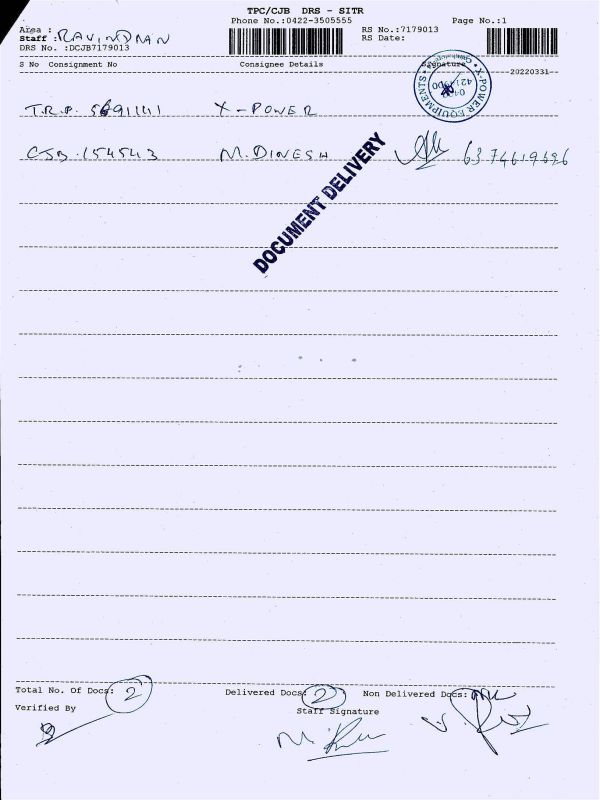 TPC/CJB DRS - SITR
Phone No.:0422-3505555 Page No.:1
Area : RS No.:7179013
Staff : RAVINDRAN RS Date:
DRS No. :DCJB7179013
S No Consignment No Consignee Details Signature
20220331
X-POWER EQUIPMENTS
T.R.P. 5691141 X-POWER
CJB.154543 M.DINESH 6374619696
DOCUMENT DELIVERY
Total No. Of Docs: 2 Delivered Docs: 2 Non Delivered Docs:
Verified By Staff Signature